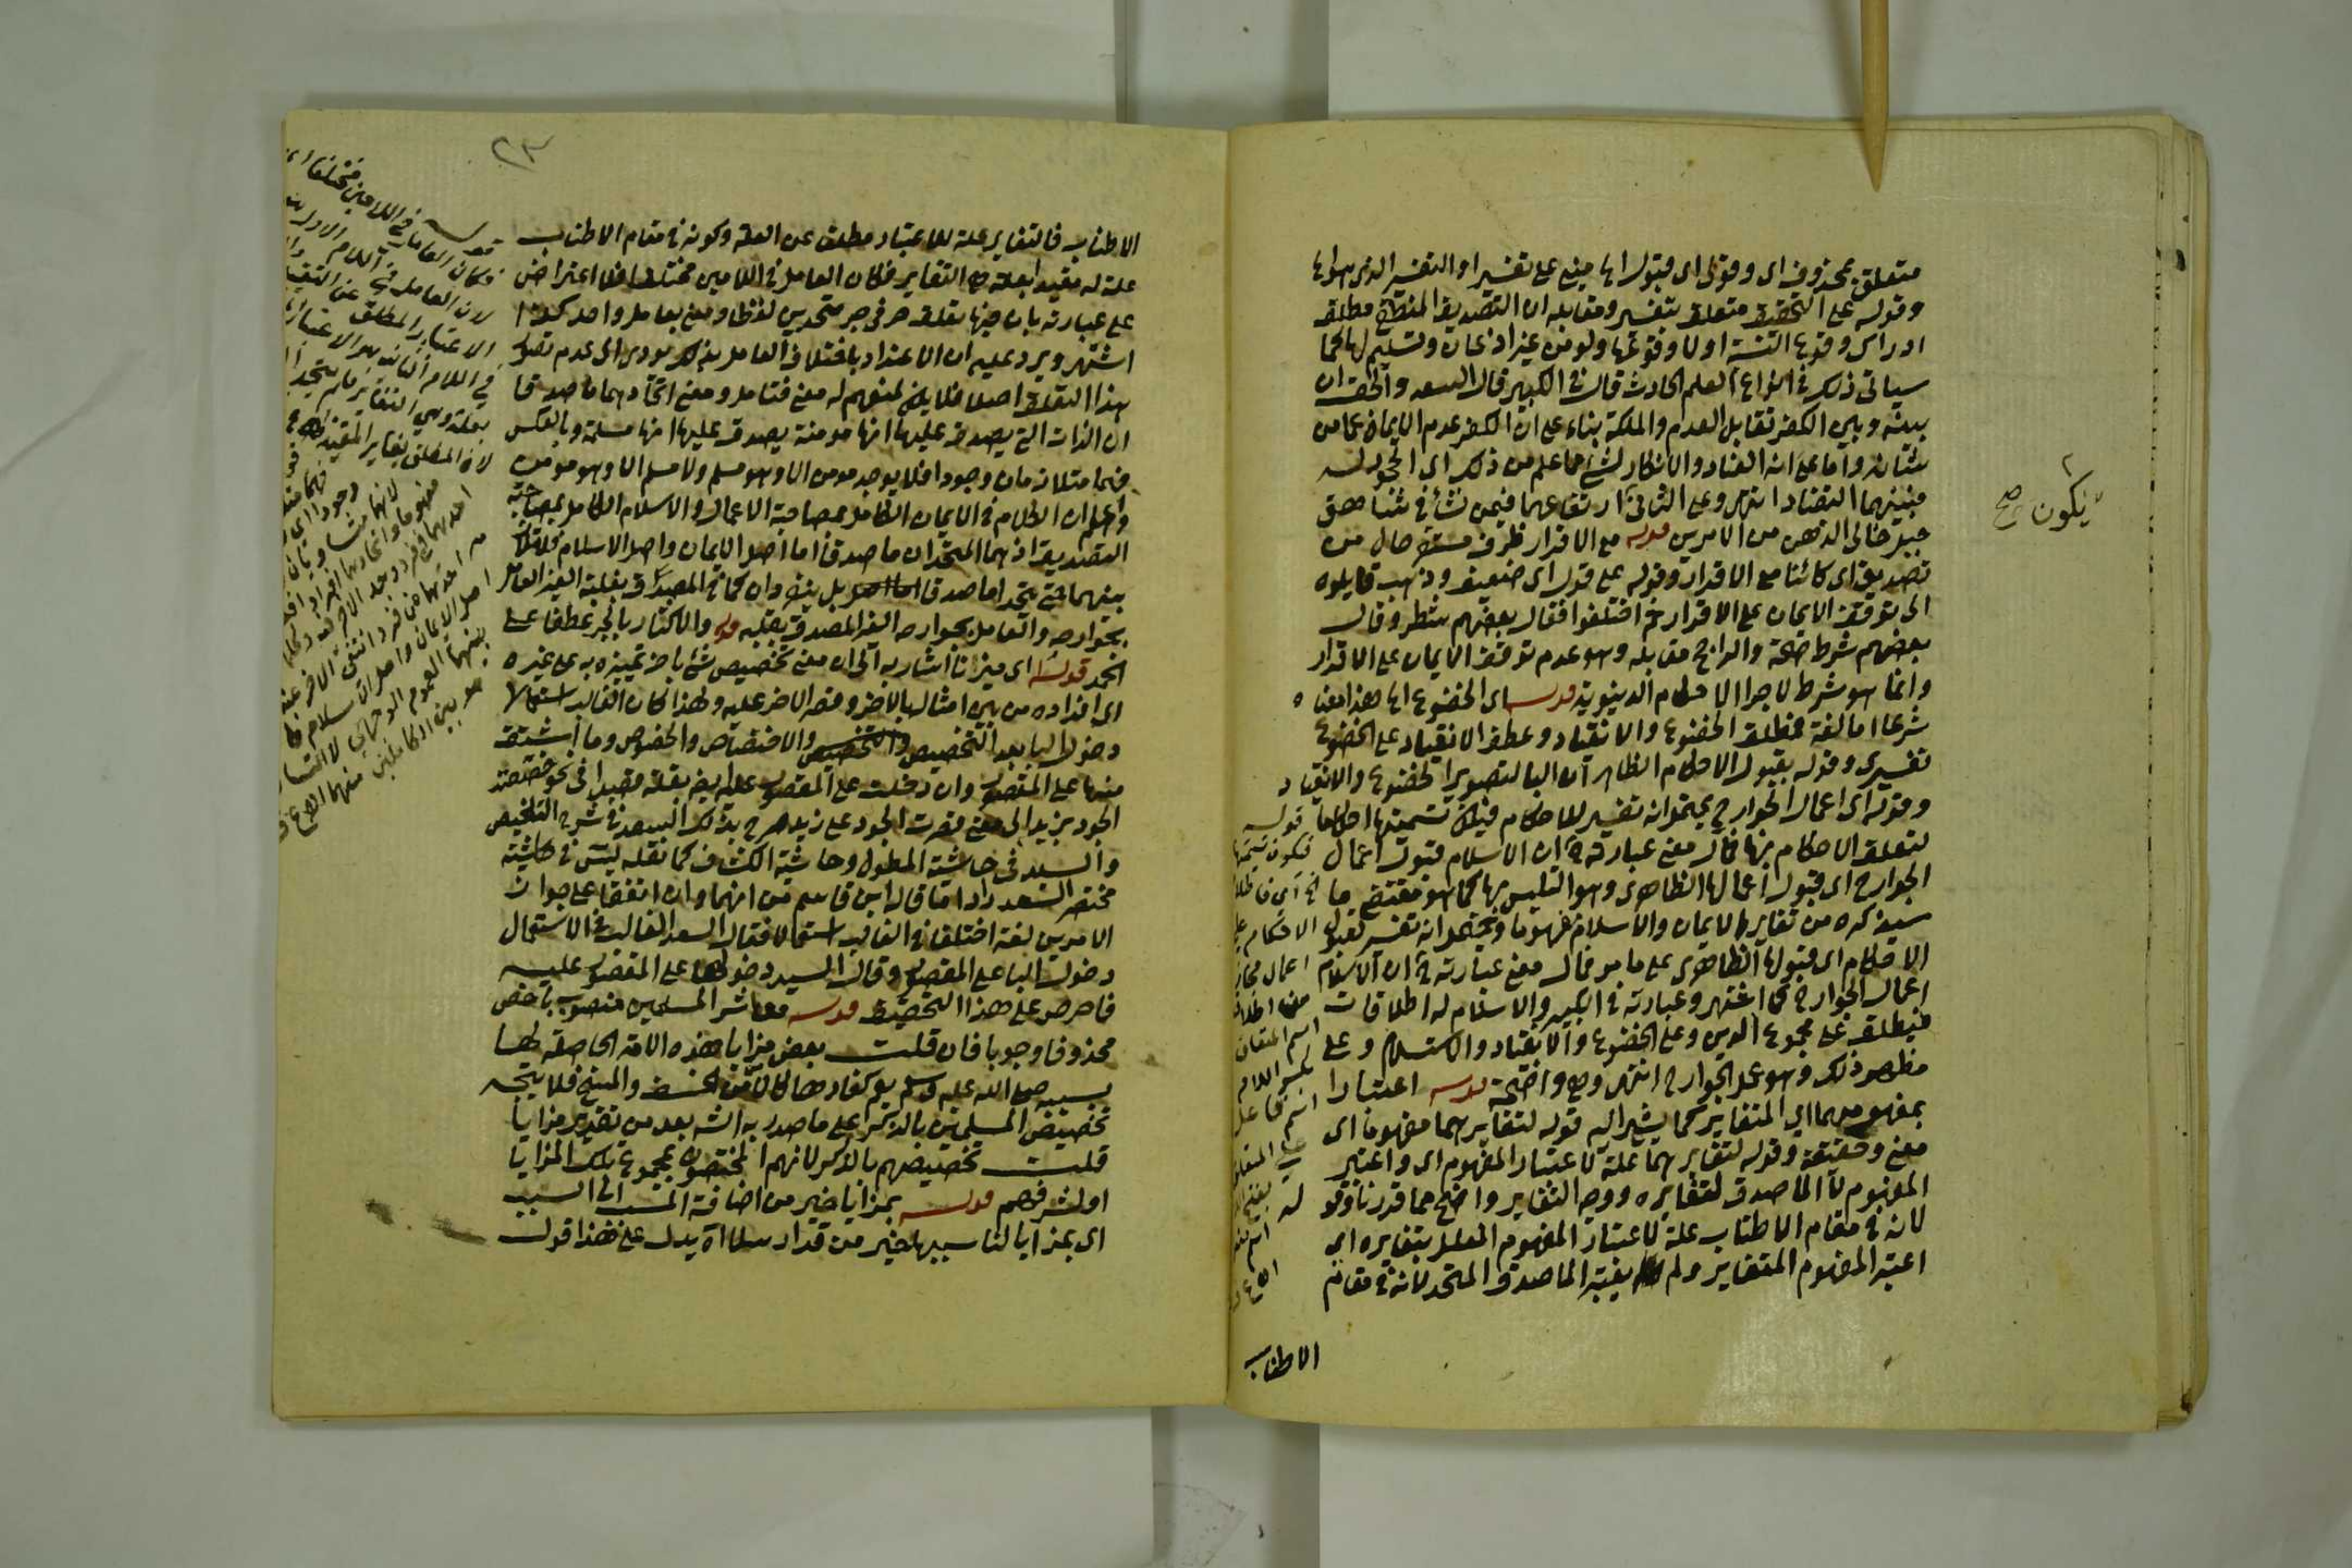 متعلق بمحذوف اى وقولى اى قبولها مبنى على تفسير او التفسير الذى هو لها
وقوله على التحقيق متعلق بتفسير ومقابله ان التصديق المنطقي مطلق
ادراك وقوع النسبة اولا وقوعها ولو من غير اذعان وتسليم لها كما
سياتى ذلك في انواع العلم الحادث قال في الكبير قال السعد والحق ان
بينه وبين الكفر تقابل العدم والملكة بناء على ان الكفر عدم الايمان عما من
شانه واما على انه العناد والانكار لشئ مما علم من ذلك اى الجحود له
فبينهما التضاد انتهى وعلى الثانى ارتفاعهما فيمن نشأ في شاهق
جبل خالى الذهن من الامرين قوله مع الاقرار ظرف مستقر حال من
تصديق اى كائنا مع الاقرار وقوله على قول اى ضعيف وذهب قايلوه
الى توقف الايمان على الاقرار ثم اختلفوا فقال بعضهم شطر وقال
بعضهم شرط صحة والراجح مقابله وهو عدم توقف الايمان على الاقرار
وانما هو شرط لاجرا الاحكام الدينوية قوله اى الخضوع الها هذا معناه
شرعا اما لغة فمطلق الخضوع والانقياد وعطف الانقياد على الخضوع
تفسيرى وقوله بقبول الاحكام الظاهر ان البا لتصوير الخضوع والانقياد
وقوله اى اعمال الجوارح يحتمل انه تفسير للاحكام فيكون تسميتها احكاما
لتعلق الاحكام بها فمال معنى عبارته ان الاسلام قبول اعمال
الجوارح اى قبول اعمالها الظاهرى وهو التلبس بها كما هو مقتضى ما
سيذكره من تغاير الايمان والاسلام مفهوما ويحتمل انه تفسير لقبول
الاحكام اى قبولها الظاهرى على ما مر فمال معنى عبارته ان الاسلام
اعمال الجوارح كما اشتهر وعبارته في الكبير والاسلام له اطلاقات
فيطلق على مجموع الدين وعلى الخضوع والانقياد والاستسلام وعلى
مظهر ذلك وهو عمل الجوارح انتهى وهى واضحة قوله اعتبارا
بمفهوميهما اي المتغاير كما يشير اليه قوله لتغايرهما مفهوما اى
معنى وحقيقة وقوله لتغايرهما علة لاعتبار المفهوم اى واعتبر
المفهوم لا الماصدق لتغايره ووجه التغاير واضح مما قدرنا وقوله
لانه في مقام الاطناب علة لاعتبار المفهوم المعلل بتغايره اى
اعتبر المفهوم المتغاير ولم يعتبر الماصدق المتحد لانه في مقام
الاطناب
فيكون صح
قوله
فيكون تسميتها
الاحكام
اعمال مجاز
من اطلاق
اسم المتعلق
بكسر اللام
اسم فاعل
على المتعلق
٢٣
الاطناب فالتغاير علة للاعتبار مطلق عن العلة وكونه في مقام الاطناب
علة له مقيد بعلة هي التغاير فكان العامل في اللامين مختلفا فلا اعتراض
على عبارته بان فيها تعلق حرفى جر متحدين لفظا ومعنى بعامل واحد كذا
اشتهر ويرد عليه ان الاعتداد باختلاف العامل بذلك يودى الى عدم تصور
هذا التعلق اصلا فلا يبقى لمنعهم له معنى فتامل ومعنى اتحادهما ماصدقا
ان الذات التي يصدق عليها انها مومنة يصدق عليها انها مسلمة وبالعكس
فهما متلازمان وجودا فلا يوجد مومن الا وهو مسلم ولا مسلم الا وهو مومن
واعلم ان الكلام في الايمان الكامل بمصاحبة الاعمال والاسلام الكامل بمصاحبة
التصديق اذ هما المتحدان ماصدقا اما اصل الايمان واصل الاسلام فلا تلازم
بينهما حتى يتحدا ماصدقا بل ينفردان كما في المصدق بقلبه الغير العامل
بجوارحه والعامل بجوارحه الغير المصدق بقلبه قوله والاكثار بالجر عطفا على
الحمد قوله اى ميزنا اشار به الى ان معنى تخصيص شئ باخر تمييزه به على غيره
اى افراده من بين امثاله بالاخر وقصر الاخر عليه ولهذا كان الغالب استعمالا
دخول البا بعد التخصيص والاختصاص والخصوص وما اشتق
منها على المقصور وان دخلت على المقصور عليه ايضا بقلة فصيرا في نحو خصصت
الجود بزيد الى معنى قصرت الجود على زيد صرح بذلك السعد في شرح التلخيص
والسيد فى حاشية المطول وحاشية الكشاف كما نقله يس في حاشيته
مختصر السعد رادا ما قاله ابن قاسم من انهما وان اتفقا على جواز
الامرين لغة اختلفا في الغالب استعمالا فقال السعد الغالب في الاستعمال
دخول البا على المقصور وقال السيد دخولها على المقصور عليه
فاحرص على هذا التحقيق قوله معاشر المسلمين منصوب باخص
محذوفا وجوبا فان قلت بعض مزايا هذه الامة الحاصلة لها
بسببه صلى الله عليه وسلم يعم كفارها كالامن من الخسف والمسخ فلا يتجه
تخصيص المسلمين بالذكر على ما صدر به الش بعد من تقدير مزايا
قلت تخصيصهم بالذكر لانهم المختصون بمجموع تلك المزايا
او لشرفهم قوله بمزايا خير من اضافة المسبب الى السبب
اى بمزايا لنا سببها خير من قد ارسلا آه يدل على هذا قول
قوله
فكان العامل في اللامين مختلفا
لان العامل في اللام الاول
الاعتبار المطلق عن التقييد
في اللام الثانيه هو الاعتبار
بعلة وهي التغاير فلم يتحدا
لان المطلق يغاير المقيد